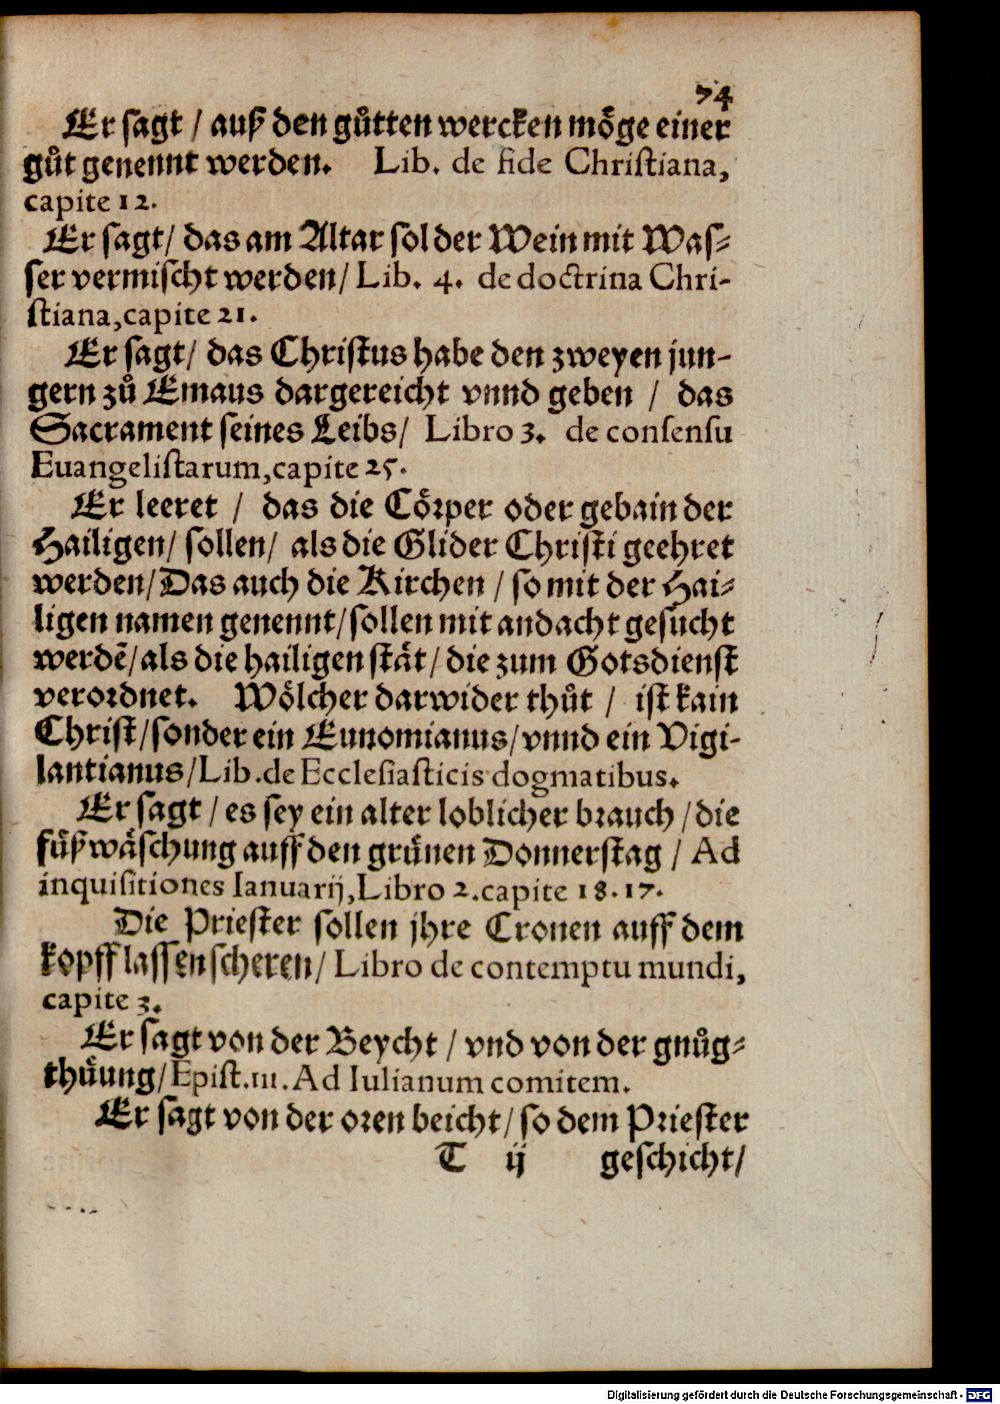 74
Er sagt / auß den gůtten wercken möge einer
gůt genennt werden. Lib. de fide Christiana,
capite 12.
Er sagt/ das am Altar sol der Wein mit Was⸗
ser vermischt werden/ Lib. 4. de doctrina Chri-
stiana, capite 21.
Er sagt/ das Christus habe den zweyen jun-
gern zů Emaus dargereicht vnnd geben / das
Sacrament seines Leibs/ Libro 3. de consensu
Euangelistarum, capite 25.
Er leeret / das die Cörper oder gebain der
Hailigen/ sollen/ als die Glider Christi geehret
werden/ Das auch die Kirchen / so mit der Hai⸗
ligen namen genennt/ sollen mit andacht gesucht
werdẽ/ als die hailigen stät/ die zum Gotsdienst
verordnet. Wölcher darwider thůt / ist kain
Christ/ sonder ein Eunomianus/ vnnd ein Vigi-
lantianus/ Lib. de Ecclesiasticis dogmatibus.
Er sagt / es sey ein alter loblicher brauch / die
fůßwäschung auff den grünen Donnerstag / Ad
inquisitiones Ianuarij, Libro 2. capite 18. 17.
Die Priester sollen jhre Cronen auff dem
kopff lassen scheren/ Libro de contemptu mundi,
capite 3.
Er sagt von der Beycht / vnd von der gnůg⸗
thüung/ Epist. III. Ad Iulianum comitem.
Er sagt von der oren beicht/ so dem Priester
T ij geschicht/
Digitalisierung gefördert durch die Deutsche Forschungsgemeinschaft - DFG